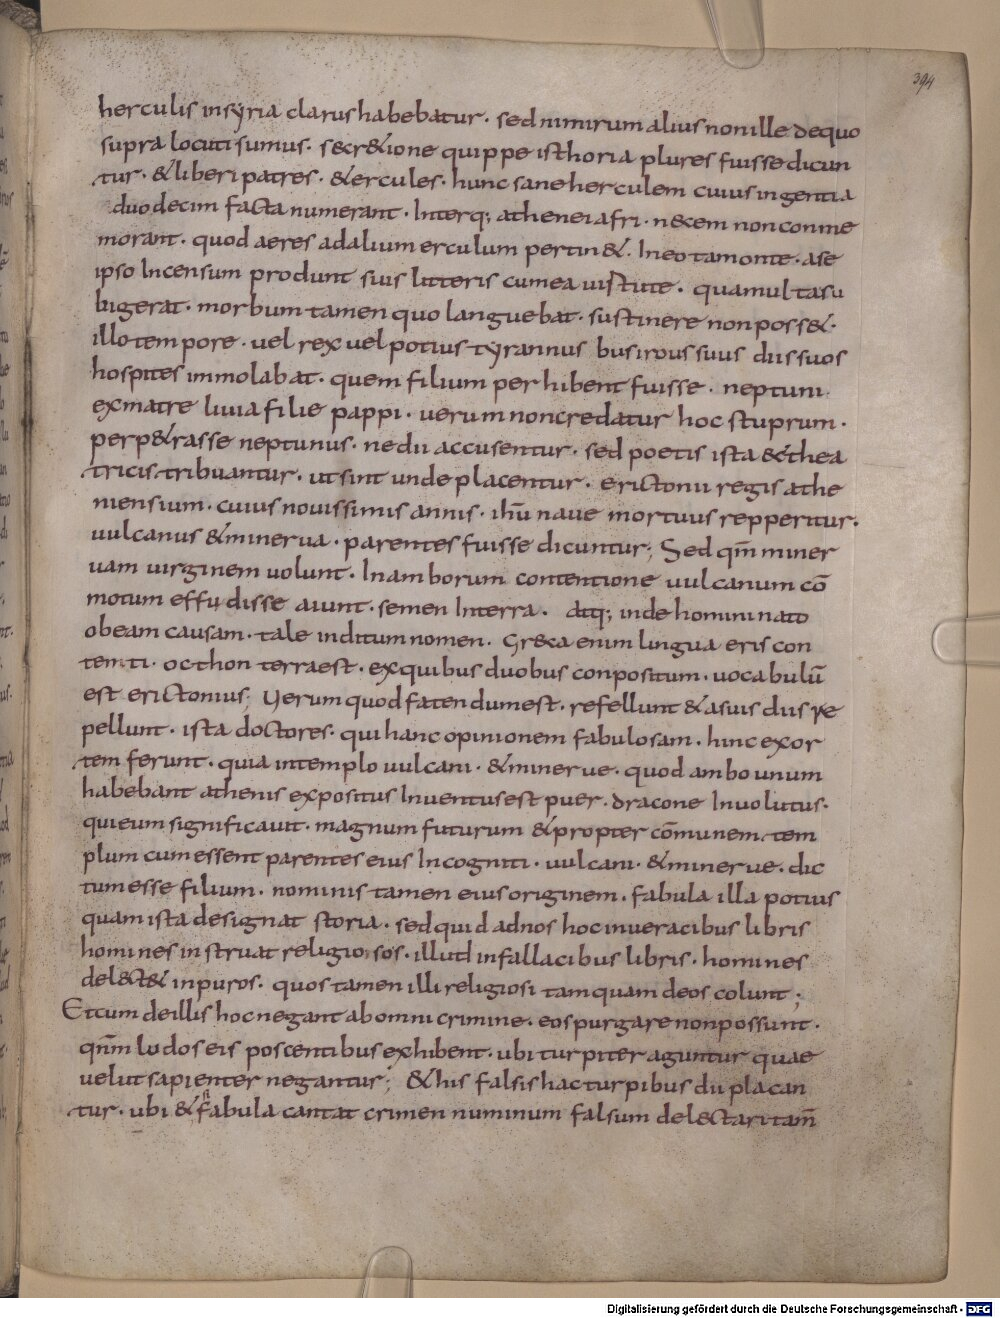 394
herculis insyria clarus habebatur · sed nimirum alius non ille de quo
supra locuti sumus · secr&ione quippe isthoria plures fuisse dicun
tur · & liberi patres · & ercules · hunc sane herculem cuius ingentia
duodecim facta numerant · Interq; athenei afri · n&cem non conme
morant · quod aeres adalium erculum pertin& · In eo tamonte · ase
ipso Incensum produnt suis litteris cum ea uistute · quamultasu
bigerat · morbum tamen quo languebat · sustinere non poss& ·
illo tempore · uel rex uel potius tyrannus busirous suus diis suos
hospites immolabat · quem filium perhibent fuisse · neptuni ·
ex matre liuia filie pappi · uerum non credatur hoc stuprum ·
perp&rasse neptunus · ne dii accusentur · sed poetis ista & thea
tricis tribuantur · ut sint unde placentur · erictonii regis athe
niensium · cuius nouissimis annis · ihū naue mortuus repperitur ·
uulcanus & minerua · parentes fuisse dicuntur; Sed qm̄ miner
uam uirginem uolunt · In amborum contentione uulcanum cō
motum effudisse aiunt · semen In terra · atq; inde homini nato
ob eam causam · tale inditum nomen · Gr&ca enim lingua eris con
tenti · octhon terra est · ex quibus duobus conpositum · uocabulū
est erictonius; Uerum quod fatendum est · refellunt & a suis diis re
pellunt · ista doctores · qui hanc opinionem fabulosam · hinc exor
tem ferunt · quia in templo uulcani · & minerue · quod ambo unum
habebant athenis expositus Inuentus est puer · dracone Inuolutus ·
qui eum significauit · magnum futurum & propter cōmunem tem
plum cum essent parentes eius Incogniti · uulcani · & minerue · dic
tum esse filium · nominis tamen eius originem · fabula illa potius
quam ista designat storia · sed quid ad nos hoc in ueracibus libris
homines instruat religiosos · illud in fallacibus libris · homines
del&ct& inpuros · quos tamen illi religiosi tamquam deos colunt;
Et cum de illis hoc negant ab omni crimine · eos purgare non possunt ·
qn̄m ludos eis poscentibus exhibent · ubi turpiter aguntur quae
uelut sapienter negantur; & his falsis hac turpibus dii placan
tur · ubi & fabula cantat crimen numinum falsum del&ctari tam̄
Digitalisierung gefördert durch die Deutsche Forschungsgemeinschaft - DFG